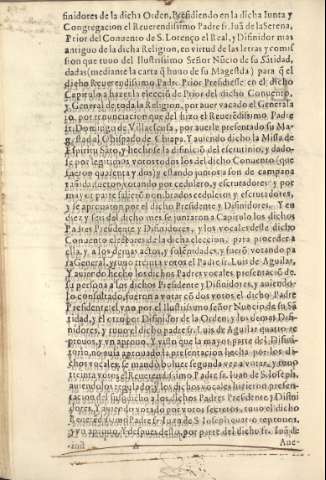 finidores de la dicha Orden, Presidiendo en la dicha Iunta y
Congregacion el Reuerendissimo Padre fr. Iuã de la Serena,
Prior del Conuento de S. Lorenço el Real, y Difinidor mas
antiguo de la dicha Religion, en virtud de las letras y comis
sion que tuuo del Ilustrissimo Señor Nũcio de su Sãtidad,
dadas (mediante la carta q̃ huuo de su Magestad) para q̃ el
dicho Reuerendissimo Padre Prior Presidiesse en el dicho
Capitulo a hazer la elecciõ de Prior del dicho Conuento,
y General de toda la Religion, por auer vacado el Generala
to, por renunciacion que del hizo el Reuerẽdissimo, Padre
fr. Domingo de Villaescusa, por auerle presentado su Ma-
gestad al Obispado de Chiapa. Y auiendo dicho la Missa de
Espiritu Sãto, y hechose la difinicõ del escrutinio, y dado-
se por legitimos votos todos los del dicho Conuento (que
fueron quarenta y dos) y estando juntos a son de campana
tañida fueron votando por cedulero, y escrutadores y por
mayor parte fuerõ nombrados cedulero y escrutadores,
y se aprouaron por el dicho Presidente y Difinidores. Y en
diez y seis del dicho mes se juntaron a Capitulo los dichos
Padres Presidente y Difinidores, y los vocales deste dicho
Conuento a celebrar la dicha eleccion, para proceder a
ella, y a los demas actos, y solẽnidades, y fuerõ votando pa
ra General, y tuuo treinta votos el Padre fr. Luis de Aguilar,
Y auiendo hecho los dichos Padres vocales presentaciõ de
su persona a los dichos Presidente y Difinidores, y auiendo-
lo consultado, fueron a votar cõ dos votos el dicho Padre
Presidente, el vno por el Ilustrissimo señor Nuncio de su Sã
tidad, y el otro por Difinidor de la Orden; y los demas Difi-
nidores, y tuuo el dicho padre fr. Luis de Aguilar quatro re
prouos, y vn aprouo. Y visto que la mayor parte del Difini-
torio, no auia aprouado la presentacion hecha por los di-
chos vocales, se mandò boluer segunda vez a votar, y tuuo
treinta votos el Reuerendissimo Padre fr. Iuan de S. Ioseph,
auiendolos regulado, y los dichos vocales hizieron presen-
tacion del susodicho a los dichos Padres Presidente y Difini
dores, Y auiendo votado por votos secretos, tuuo el dicho
Reuerendissimo Padre fr. Iuan de S. Ioseph quatro reprouos,
y vn aprouo. Y despues desto, por parte del dicho fr. Iuã de
A Aue-